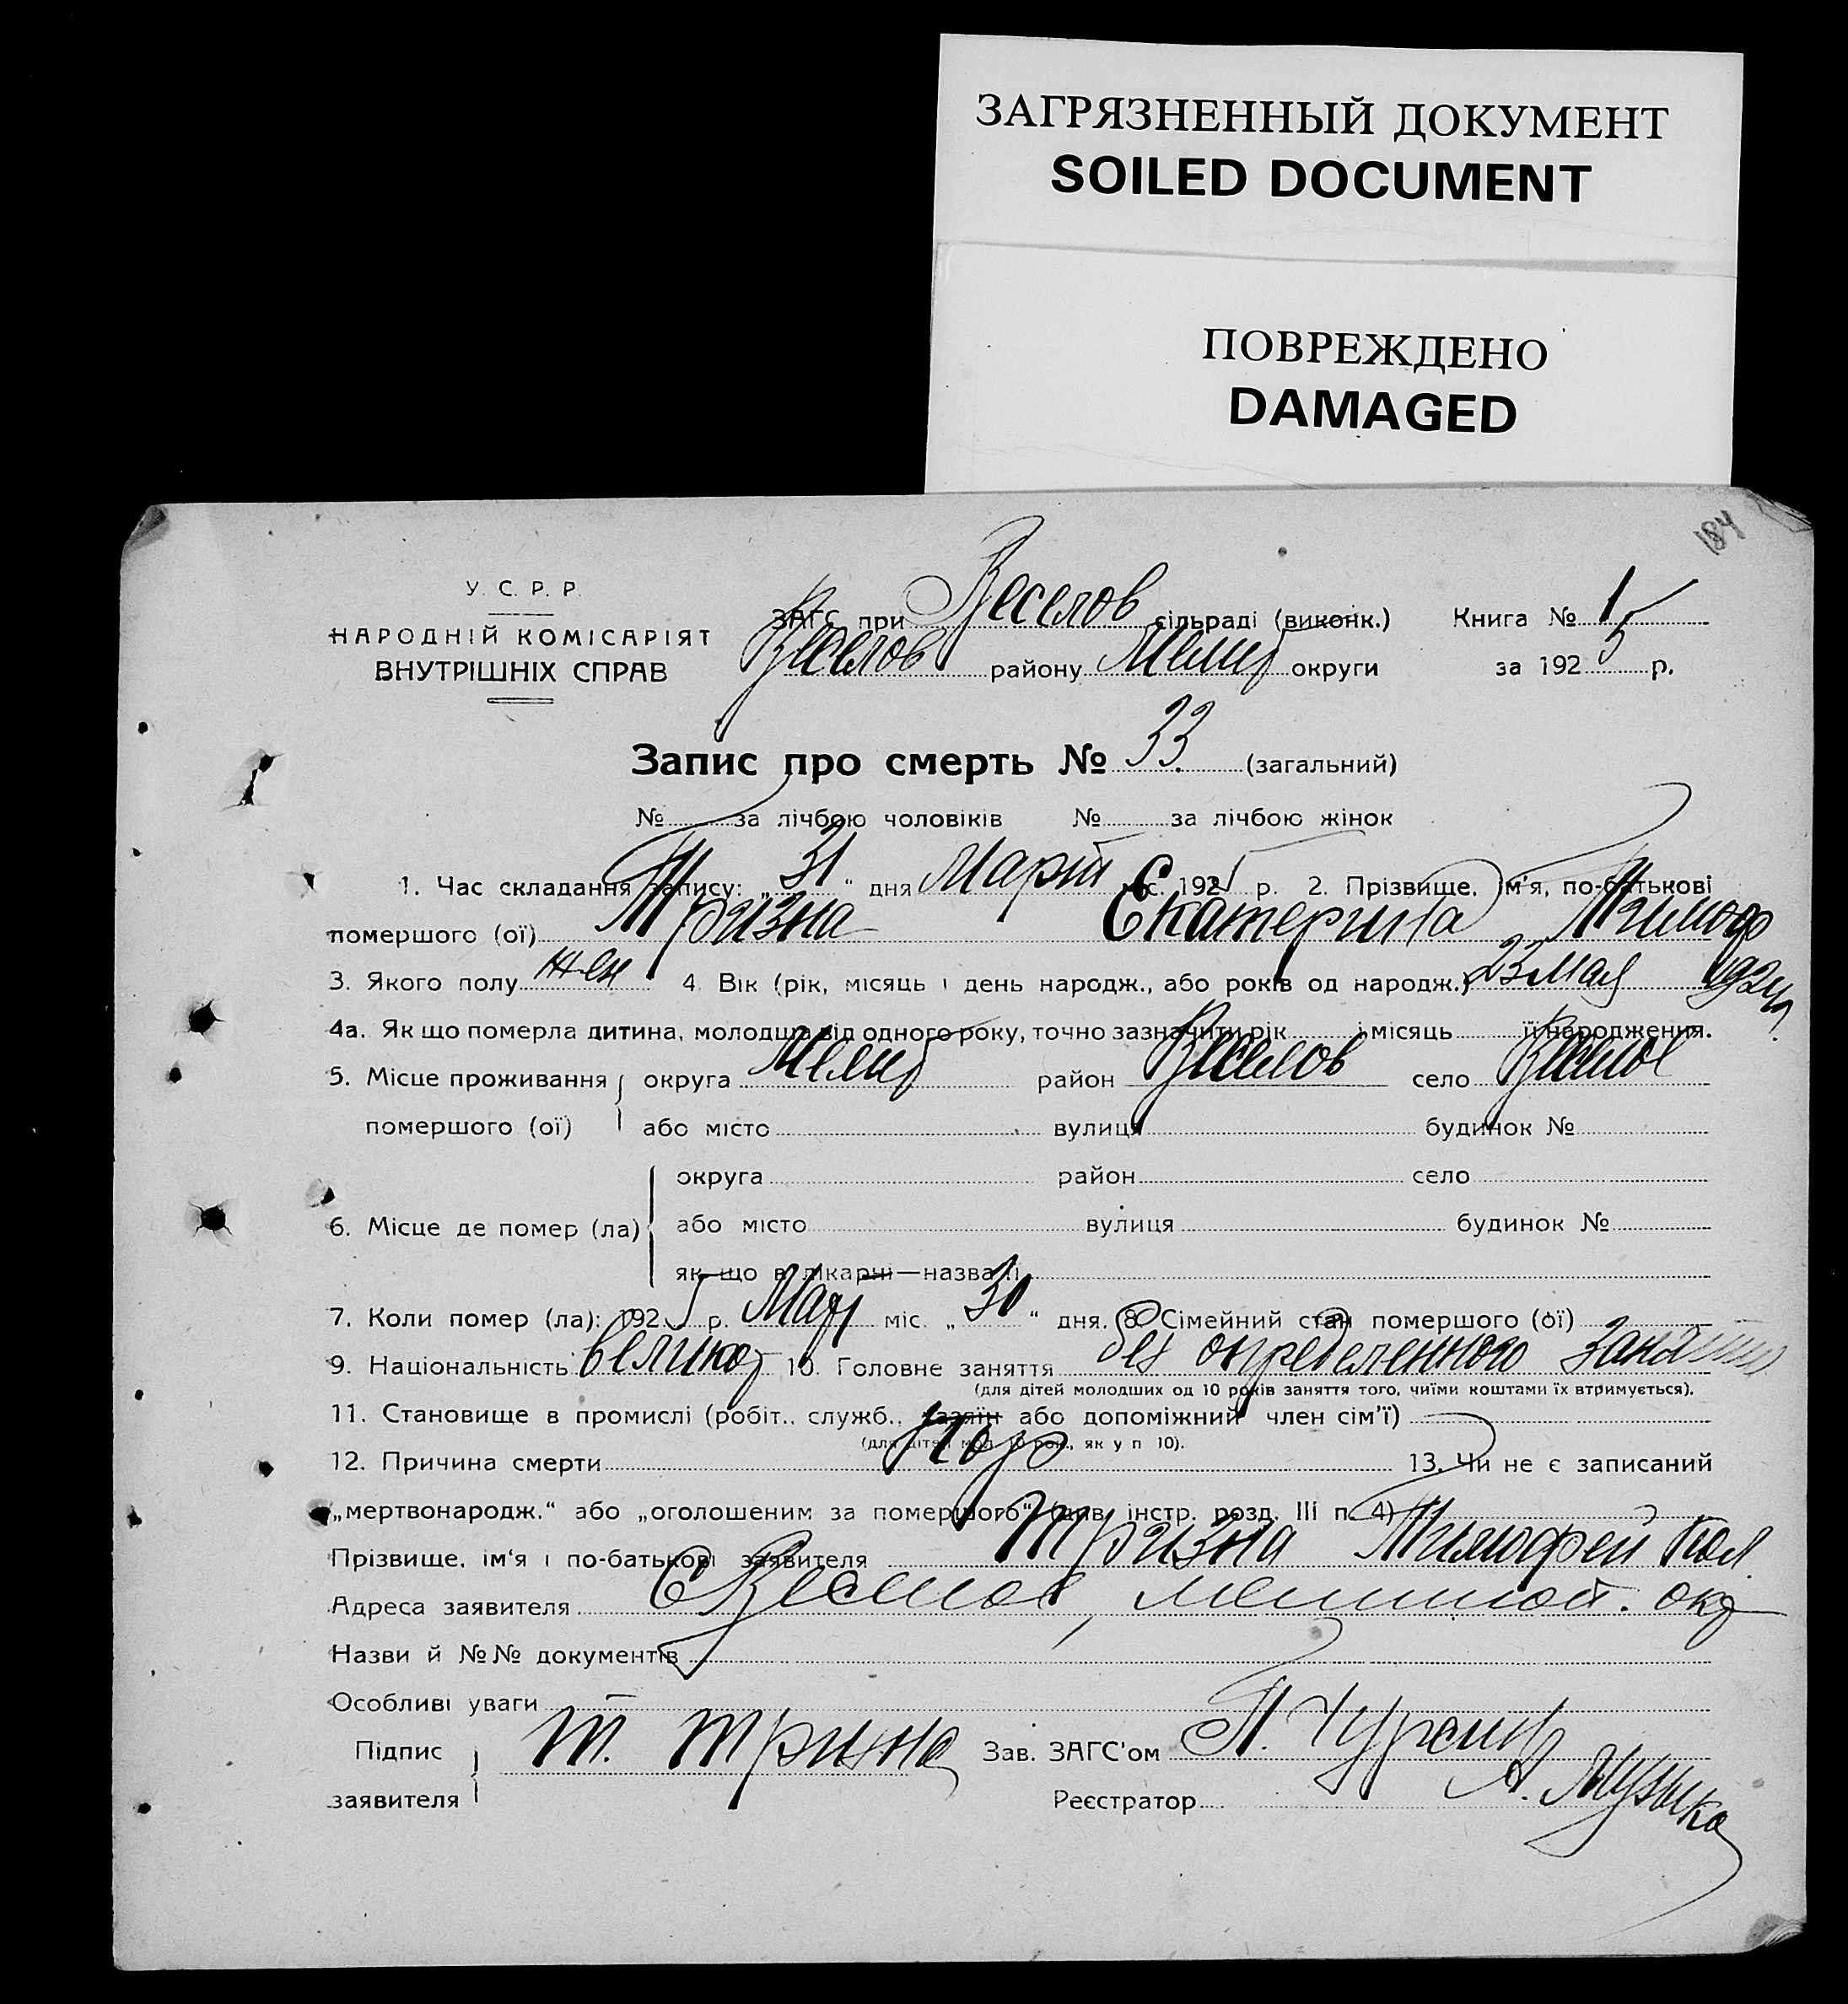 ЗАГРЯЗНЕННЫЙ ДОКУМЕНТ
SOILED DOCUMENT
ПОВРЕЖДЕНО
DAMAGED
184
У. С. Р. Р.
НАРОДНІЙ КОМІСАРІЯТ
ВНУТРІШНІХ СПРАВ
ЗАГС при Веселов сільраді (виконк.) Книга № 1
Веселов району Мелит округи за 1925 р.
Запис про смерть № 33 (загальний)
№ за лічбою чоловіків № за лічбою жінок
1. Час складання запису: „31“ дня Март міс. 1925 р. 2. Прізвище, ім'я, по-батькові
помершого (ої) Тризна Екатерина Тимоф
3. Якого полу жен 4. Вік (рік, місяць і день народж., або років од народж.) 23 мая 1924
4а. Як що померла дитина, молодша від одного року, точно зазначити рік і місяць її народження.
5. Місце проживання округа Мелит район Веселов село Веселое
помершого (ої) або місто вулиця будинок №
округа район село
6. Місце де помер (ла) або місто вулиця будинок №
як що в лікарні—назва її
7. Коли помер (ла): 1925 р. Март міс. „30“ дня. 8. Сімейний стан помершого (ої)
9. Національність 10. Головне заняття без определенного занятия
(для дітей молодших од 10 років заняття того, чиїми коштами їх втримується).
11. Становище в промислі (робіт., служб., хазяїн або допоміжний член сім'ї)
(для дітей мол. 10 рок., як у п 10).
12. Причина смерти 13. Чи не є записаний
„мертвонародж.“ або „оголошеним за помершого“ (див. інстр. розд. III п. 4)
Прізвище, ім'я і по-батькові заявителя Тризна Тимофей
Адреса заявителя С Веселое, мелитоп. окр
Назви й №№ документів
Особливі уваги
Підпис Т. Тризна Зав. ЗАГС'ом П. Чурсин
заявителя Реєстратор А. Музыка